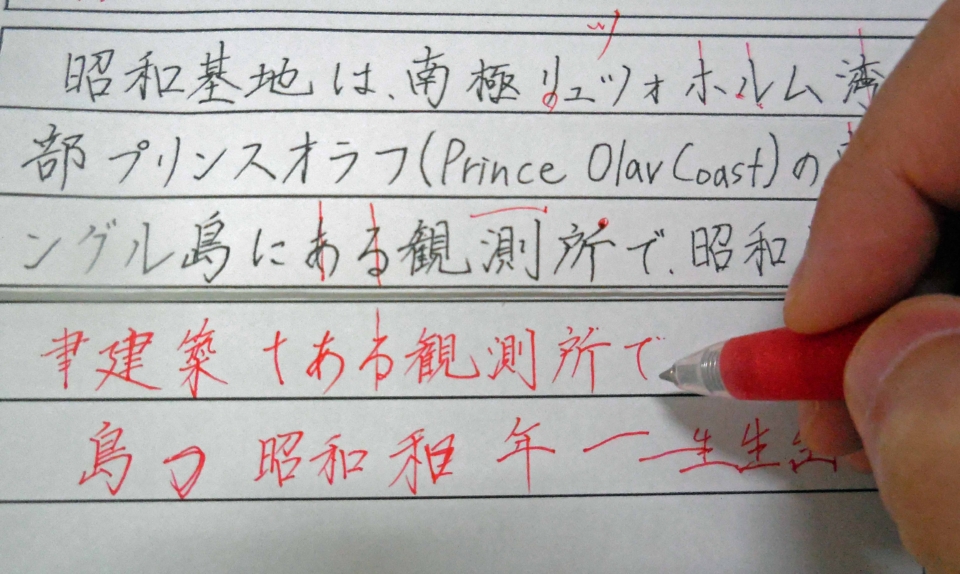 ツ
昭和基地は、南極リュツォホルム湾
部プリンスオラフ(Prince Olav Coast)の
ングル島にある観測所で、昭和
聿建築 ある観測所で
島 昭和和年一生生生